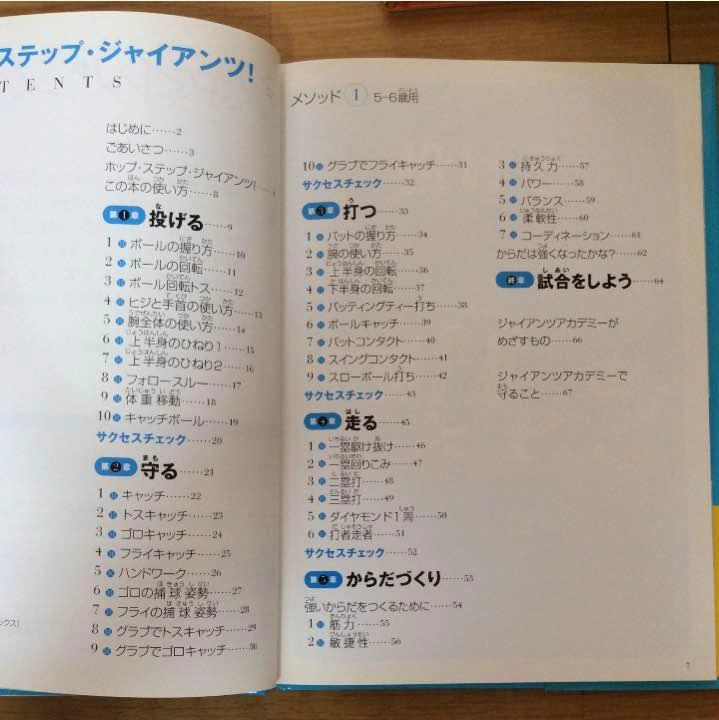 ステップ・ジャイアンツ!
TENTS
はじめに……2
ごあいさつ……3
ホップ・ステップ・ジャイアンツ!
この本の使い方……8
第1章 投げる……9
1 ボールの握り方……10
2 ボールの回転……11
3 ボール回転トス……12
4 ヒジと手首の使い方……13
5 腕全体の使い方……14
6 上半身のひねり1……15
7 上半身のひねり2……16
8 フォロースルー……17
9 体重移動……18
10 キャッチボール……19
サクセスチェック……20
第2章 守る……21
1 キャッチ……22
2 トスキャッチ……23
3 ゴロキャッチ……24
4 フライキャッチ……25
5 ハンドワーク……26
6 ゴロの捕球姿勢……27
7 フライの捕球姿勢……28
8 グラブでトスキャッチ……29
9 グラブでゴロキャッチ……30
メソッド 1 5-6歳用
10 グラブでフライキャッチ……31
サクセスチェック……32
第3章 打つ……33
1 バットの握り方……34
2 腕の使い方……35
3 上半身の回転……36
4 下半身の回転……37
5 バッティングティー打ち……38
6 ボールキャッチ……39
7 バットコンタクト……40
8 スイングコンタクト……41
9 スローボール打ち……42
サクセスチェック……43
第4章 走る……45
1 一塁駆け抜け……46
2 一塁回りこみ……47
3 二塁打……48
4 三塁打……49
5 ダイヤモンド1周……50
6 打者走者……51
サクセスチェック……52
第5章 からだづくり……53
強いからだをつくるために……54
1 筋力……55
2 敏捷性……56
3 持久力……57
4 パワー……58
5 バランス……59
6 柔軟性……60
7 コーディネーション……61
からだは強くなったかな?……62
終章 試合をしよう……64
ジャイアンツアカデミーが
めざすもの……66
ジャイアンツアカデミーで
守ること……67
7